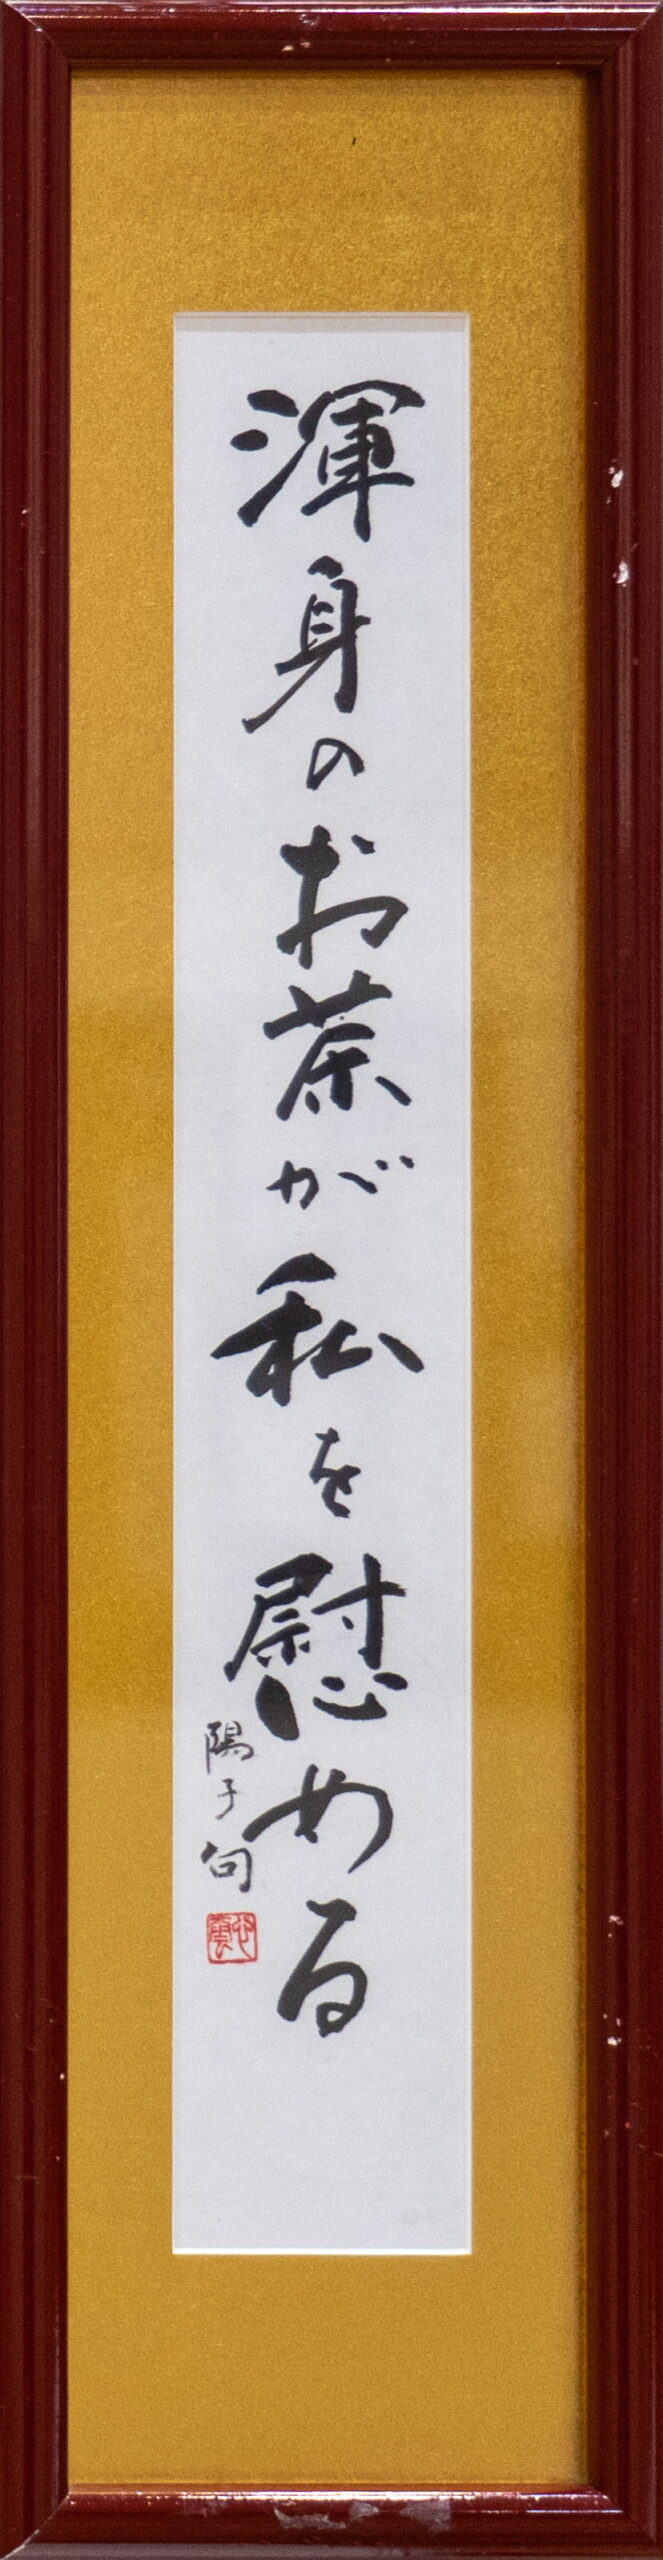 渾身のお茶が私を慰める
陽子句